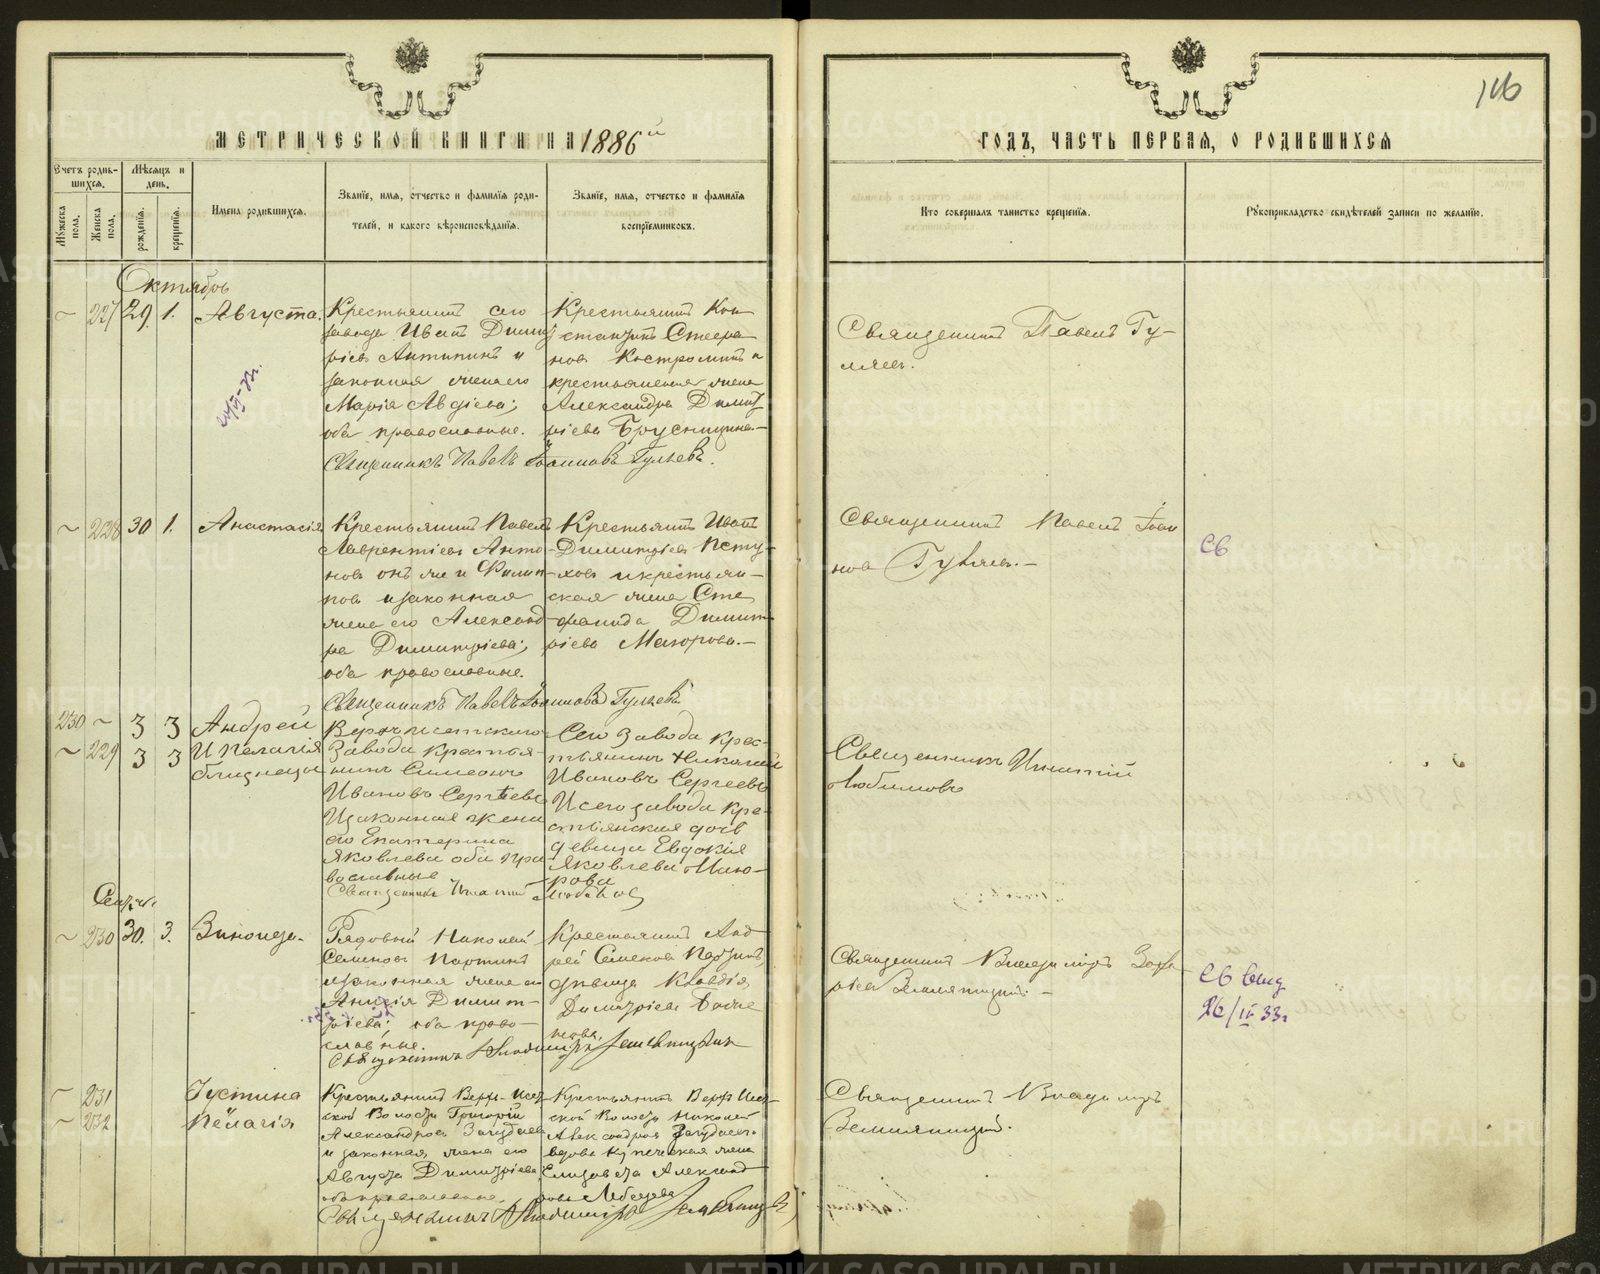 146
МЕТРИЧЕСКОЙ КНИГИ НА 1886й
ГОДЪ, ЧАСТЬ ПЕРВАЯ, О РОДИВШИХСЯ
Счетъ родившихся.
Мужеска пола.
Женска пола.
Мѣсяцъ и день.
рожденія.
крещенія.
Имена родившихся.
Званіе, имя, отчество и фамилія родителей, и какого вѣроисповѣданія.
Званіе, имя, отчество и фамилія воспріемниковъ.
Кто совершалъ таинство крещенія.
Рукоприкладство свидѣтелей записи по желанію.
Октябрь
~ 227 29. 1. Августа.
Крестьянинъ сего
завода Иванъ Димит
ріевъ Антипинъ и
законная жена его
Марія Авдіева;
оба православные.
Священникъ Павелъ Іоанновъ Гуляевъ.
Крестьянинъ Кон
стантинъ Стефа
новъ Костроминъ и
крестьянская жена
Александра Димит
ріева Брусницина.—
Священникъ Павелъ Гу-
ляевъ.
~ 228 30 1. Анастасія
Крестьянинъ Павелъ
Лаврентіевъ Анто-
новъ онъ же и Филип-
повъ и законная
жена его Александ
ра Димитріева;
оба православные.
Священникъ Павелъ Іоанновъ Гуляевъ
Крестьянинъ Иванъ
Димитріевъ Пету-
ховъ и крестьян-
ская жена Сте
фанида Димит
ріева Мазорова.—
Священникъ Павелъ Іоан
новъ Гуляевъ.—
св
230 ~ 3 3 Андрей
~ 229 3 3 И Пелагія
близнецы
Верхъ исетскаго
Завода крестья-
нинъ Симеонъ
Ивановъ Сергѣевъ
И законная жена
его Екатерина
Яковлева оба пра-
вославные
Священникъ Игнатій Любимовъ
Сего Завода крес-
тьянинъ Николай
Ивановъ Сергеевъ
И сего завода кре-
стьянская дочь
девица Евдокія
Яковлева
Священникъ Игнатій
Любимовъ
~ 230 30. 3. Зинаида.
Рядовый Николай
Семеновъ Партинъ
и законная жена его
Анисія Димит-
ріева; оба право-
славные.
Крестьянинъ Анд
рей Семеновъ
дѣвица Клавдія
Димитріева
Священникъ Владиміръ Земляницынъ
Священникъ Владиміръ
Земляницынъ.—
св выд
26/IV 33г
~ 231 Іустина
~ 232 Пелагія
Крестьянинъ Верхъ Исет
ской Волости Григорій
Александровъ
и законная жена его
Августа Димитріева
оба православные.
Крестьянинъ Верхъ Исет-
ской Волости Николай
Александровъ
вдова купеческая жена
Елизавета Александ
рова Лебедева
Священникъ Владиміръ Земляницынъ
Священникъ Владиміръ
Земляницынъ.
METRIKI.GASO-URAL.RU